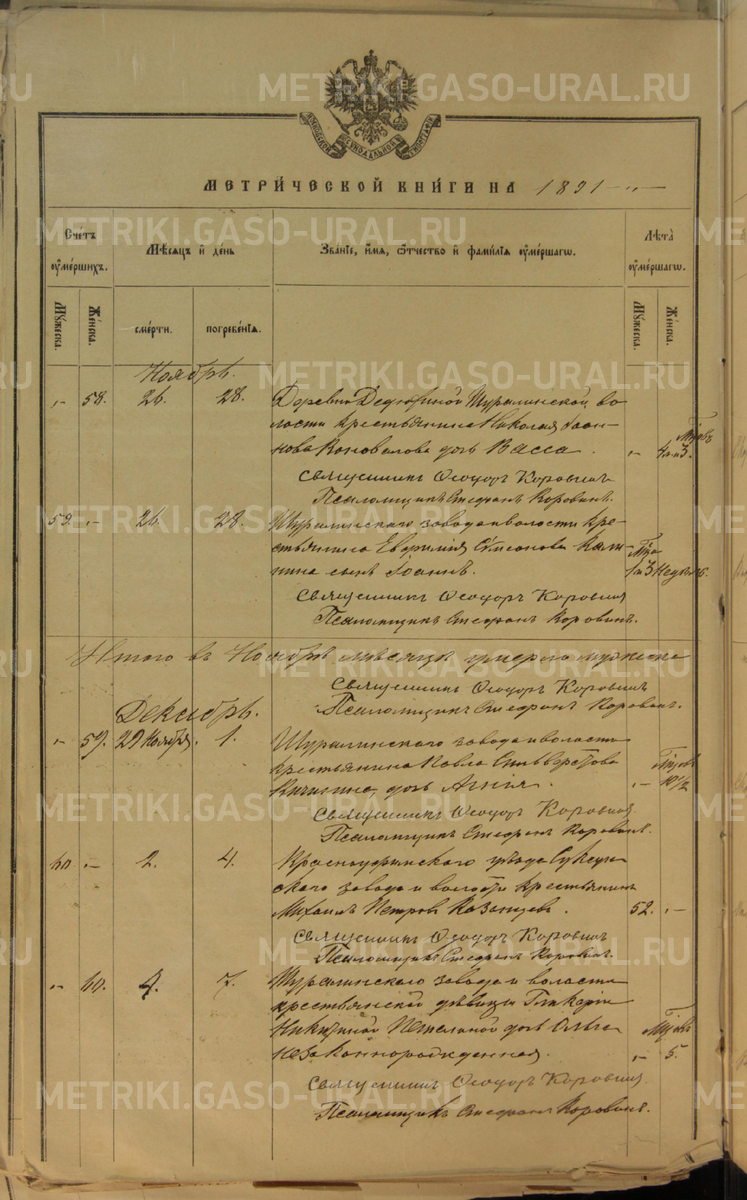 METRIKI.GASO-URAL.RU
МЕТРИ́ЧЕСКОЙ КНИ́ГИ НА 1891
Сче́тъ ᲂу҆ме́ршихъ.
Мѣ́сяцъ и҆ де́нь
Зва́нїе, и҆́мя, ѻ҆́тчество и҆ фами́лїя ᲂу҆ме́ршагѡ.
Лѣ́та ᲂу҆ме́ршагѡ.
Мꙋ́жеска.
Же́нска.
сме́рти.
погребе́нїя.
Мꙋ́жеска.
Же́нска.
Ноябрь.
„ 58. 26. 28. Деревни Дедюхиной Шуралинской во-
лости крестьянина Николая Іоан-
нова Коновалова дочь Васса. „
Священникъ Ѳеодоръ Коровинъ
Псаломщикъ Стефанъ Коровинъ.
59. „ 26. 28. Шуралинскаго завода и волости кре-
стьянина Евѳимія Симеонова
сынъ Іоаннъ.
Священникъ Ѳеодоръ Коровинъ
Псаломщикъ Стефанъ Коровинъ.
Итого въ Ноябрѣ мѣсяцѣ умерло
Священникъ Ѳеодоръ Коровинъ
Псаломщикъ Стефанъ Коровинъ.
Декабрь.
„ 59. 29 Ноября. 1. Шуралинскаго завода и волости
крестьянина Павла
дочь Агнія. „ 10½
Священникъ Ѳеодоръ Коровинъ
Псаломщикъ Стефанъ Коровинъ.
60. „ 2. 4. Красноуфимскаго уѣзда
завода и волости крестьянинъ
Михаилъ Петровъ Казанцевъ. 52. „
Священникъ Ѳеодоръ Коровинъ
Псаломщикъ Стефанъ Коровинъ.
„ 60. 4. 7. Шуралинскаго завода и волости
крестьянской дѣвицы Гликеріи
Никитиной дочь Ольга
незаконнорожденная. „ 5.
Священникъ Ѳеодоръ Коровинъ
Псаломщикъ Стефанъ Коровинъ.